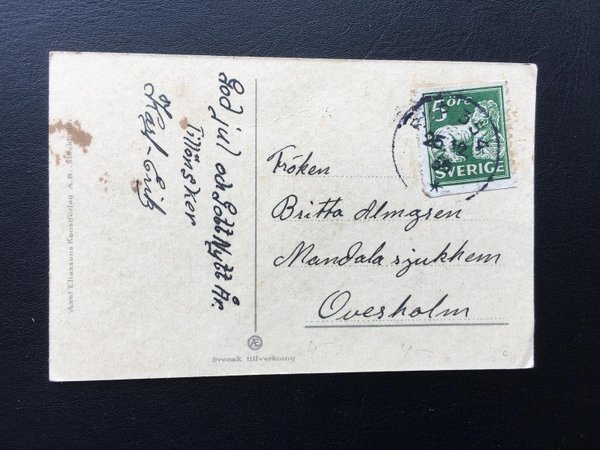 God jul och Gott Nytt År.
Tillönsker
Karl-Erik
Axel Eliassons Konstförlag A.B.
Svensk tillverkning
5 ÖRE
SVERIGE
Fröken
Britta Almgren
Mandala sjukhem
Ovesholm
C